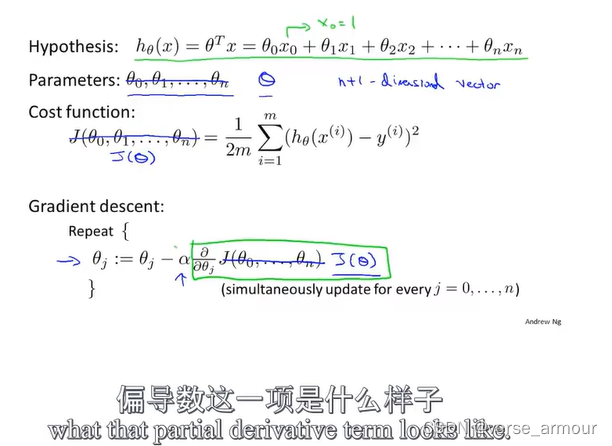 x₀=1
Hypothesis: h_θ(x) = θᵀx = θ₀x₀ + θ₁x₁ + θ₂x₂ + ⋯ + θₙxₙ
Parameters: θ₀, θ₁, . . . , θₙ θ n+1 - dimensional vector
Cost function:
J(θ₀, θ₁, . . . , θₙ) = 1/2m ∑_{i=1}^{m} (h_θ(x⁽ⁱ⁾) − y⁽ⁱ⁾)²
J(θ)
Gradient descent:
Repeat {
→ θⱼ := θⱼ − α ∂/∂θⱼ J(θ₀, . . . , θₙ) J(θ)
} (simultaneously update for every j = 0, . . . , n)
Andrew Ng
偏导数这一项是什么样子
what that partial derivative term looks like.